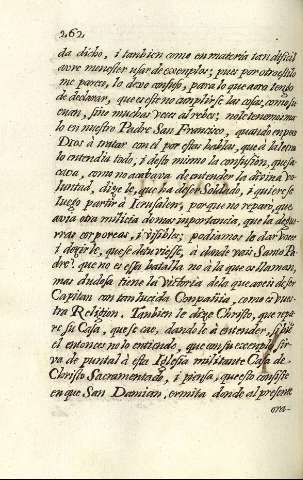 262
da dicho, i tanbien como en materia tan dificil
avre menester usar de exenplos; pues por otro estilo
me parece, lo devo confeso, para lo que aora tengo
de declarar, que es este no cunplirse las cosas, como
suenan, sino muchas veces al rebes; no le tenemos ma
lo en nuestro Padre San Francisco, quando enpeço
Dios à tratar con èl por estas hablas, que à la letra
lo entendia todo, i desto mismo la confusion, que sa
cava, como no acabava de entender la divina vo
luntud, dizele, que ha de ser Soldado, i quiere se
luego partir à Ierusalen; porque no reparò, que
avia otra milicia de mas importancia, que la de gue
rras corporeas, i visibles; podiamosle dar voces
i dezirle, que se detuviesse, à donde vais Santo Pa
dre? que no es essa batalla no à la que os llaman,
mas dudosa tiene la victoria de la que aveis de ser
Capitan con tan lucida Conpañia, como es vues
tra Religion. Tanbien le dize Christo, que repa
re su Casa, que se cae, dandole à entender, si bie
el entonces no lo entiende, que con su exenplo sir
va de puntal à esta Iglesia militante Casa de
Christo Sacramentado, i piensa, que esto consiste
en que San Damian, ermita donde al presente
ora-